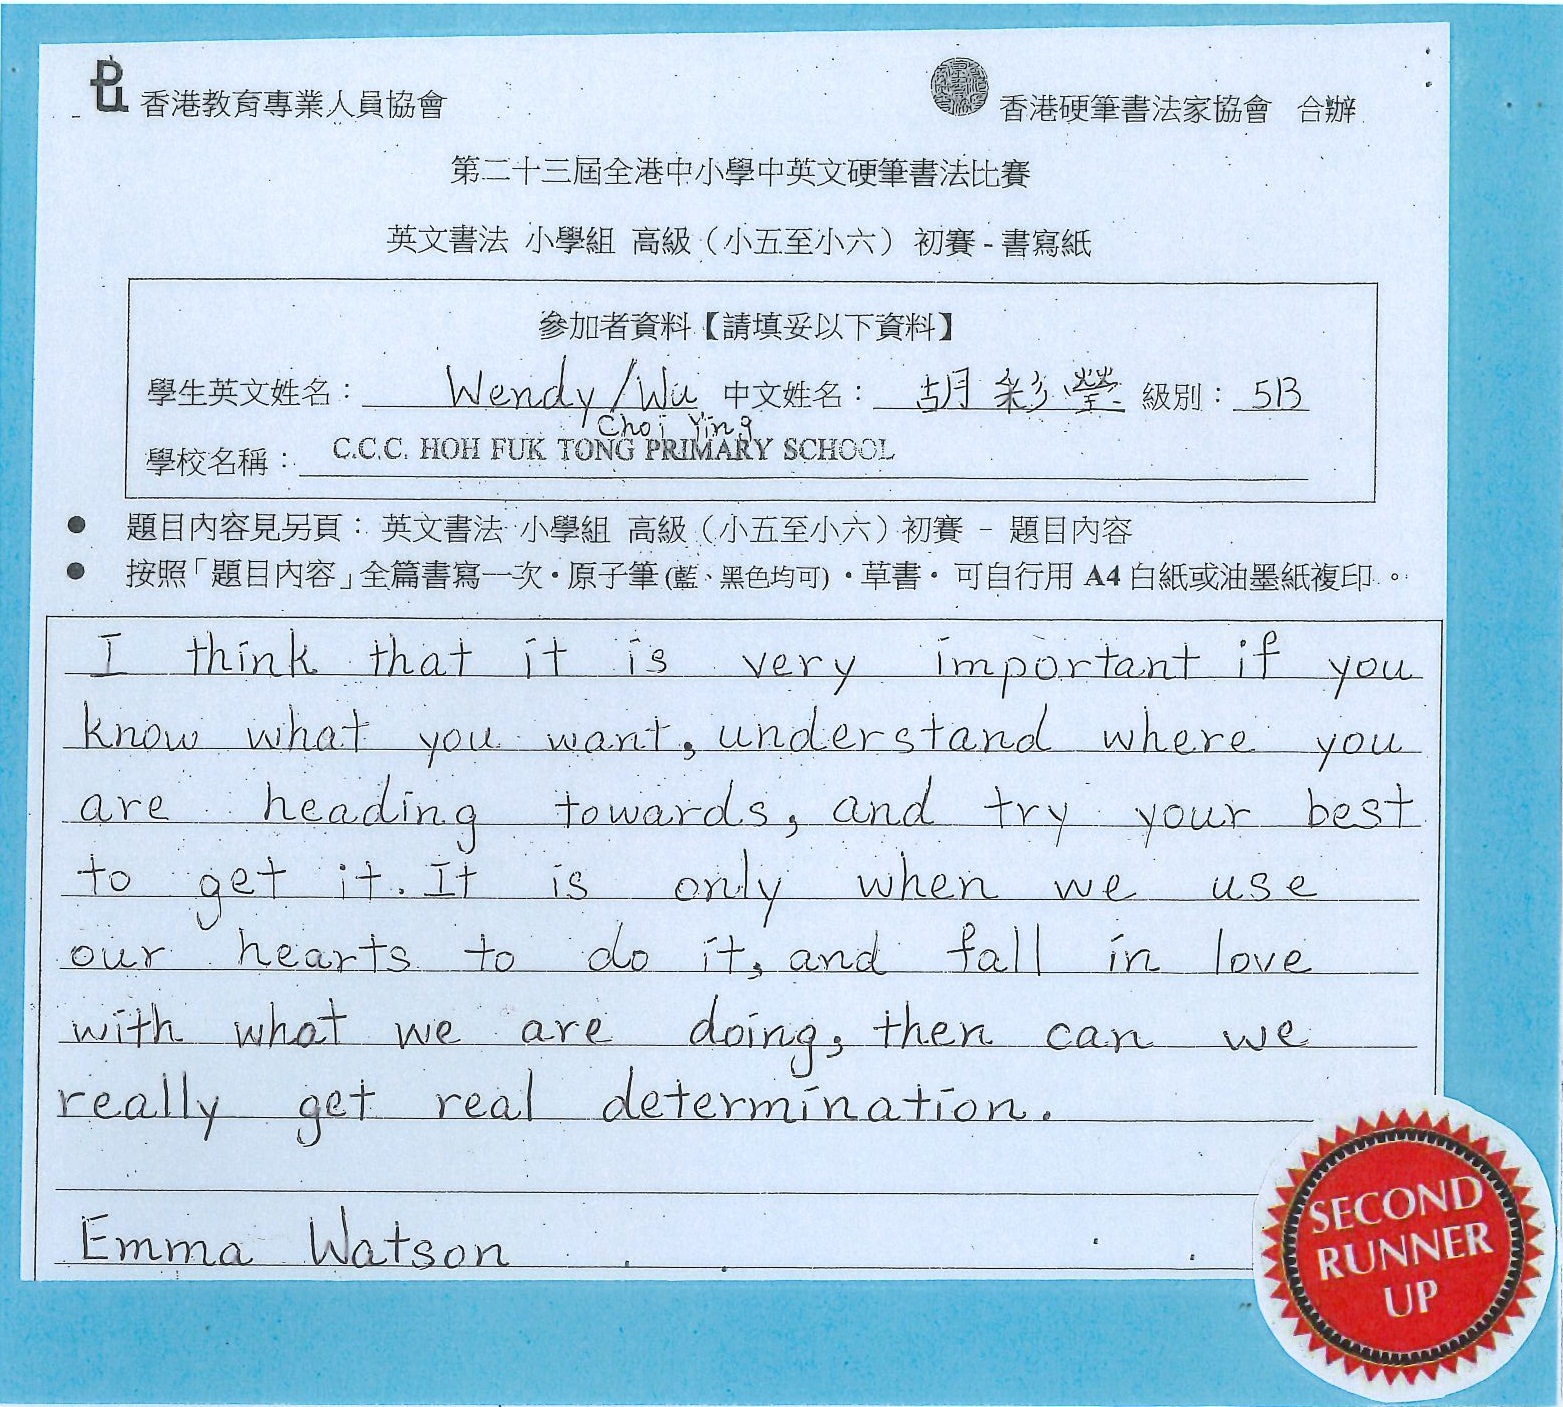 香港教育專業人員協會
香港硬筆書法家協會 合辦
第二十三屆全港中小學中英文硬筆書法比賽
英文書法 小學組 高級（小五至小六） 初賽 - 書寫紙
參加者資料【請填妥以下資料】
學生英文姓名： Wendy/Wu 中文姓名： 胡彩瑩 級別： 5B
Choi Ying
學校名稱： C.C.C. HOH FUK TONG PRIMARY SCHOOL
● 題目內容見另頁： 英文書法 小學組 高級（小五至小六）初賽 - 題目內容
● 按照「題目內容」全篇書寫一次・原子筆(藍、黑色均可)・草書・可自行用 A4 白紙或油墨紙複印。
I think that it is very important if you
know what you want, understand where you
are heading towards, and try your best
to get it. It is only when we use
our hearts to do it, and fall in love
with what we are doing, then can we
really get real determination.
Emma Watson
SECOND
RUNNER
UP